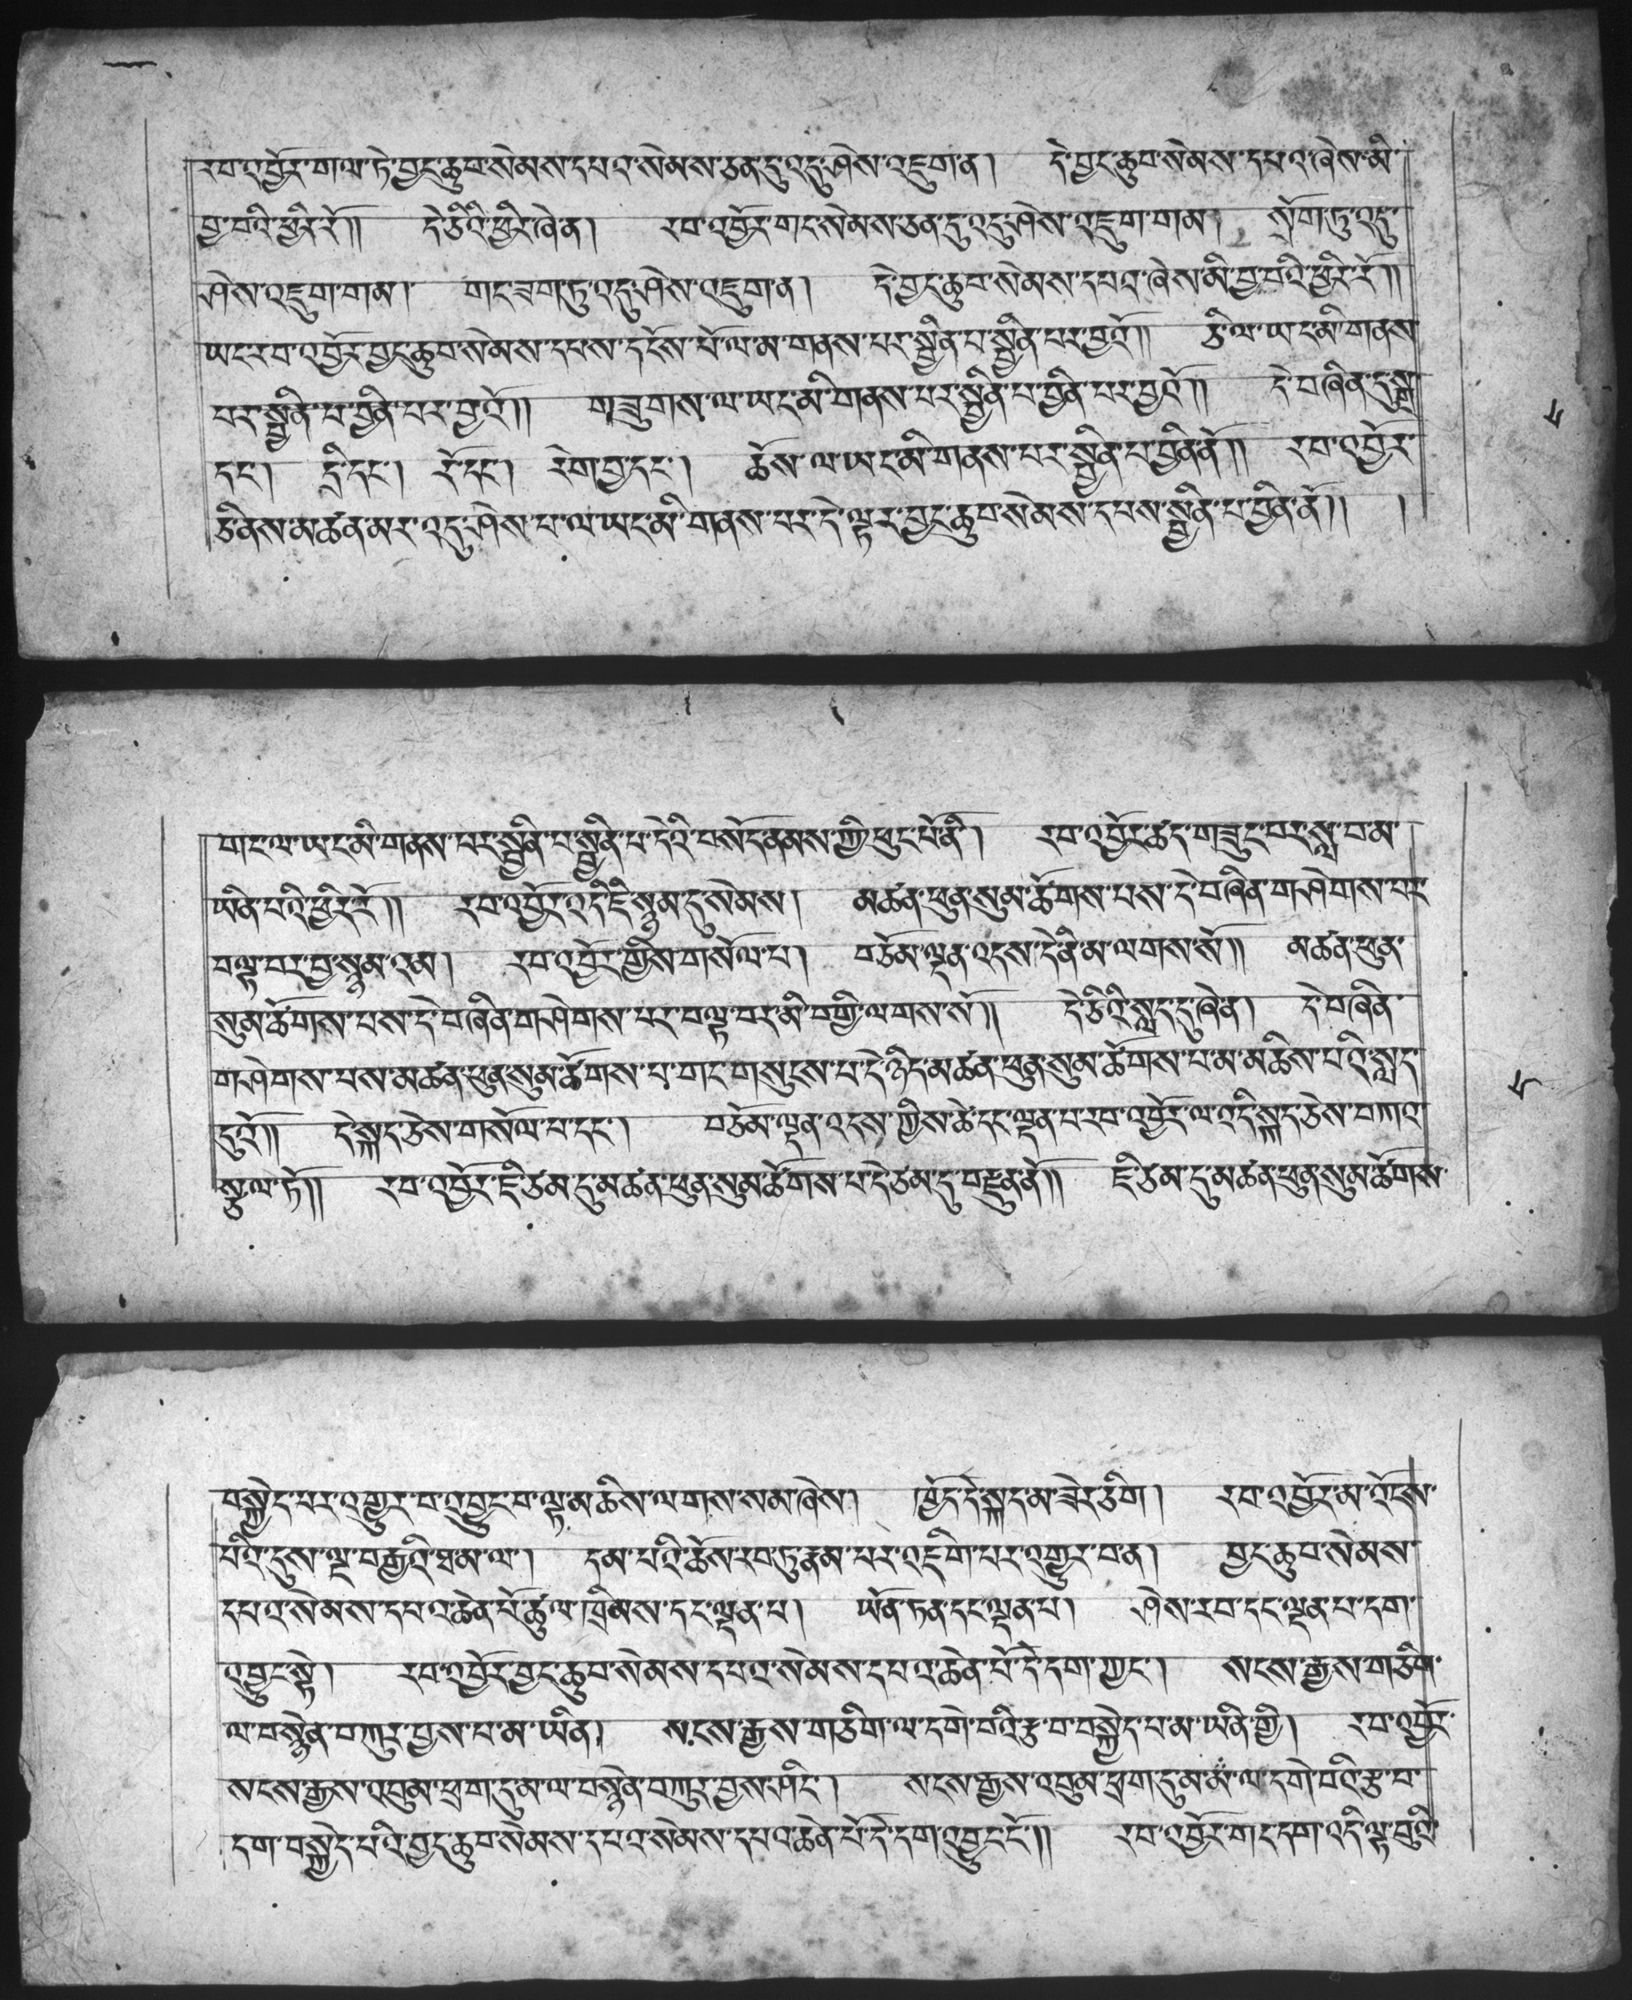 རབ་འབྱོར་གལ་ཏེ་བྱང་ཆུབ་སེམས་དཔའ་སེམས་ཅན་དུ་འདུ་ཤེས་འཇུག་ན། དེ་བྱང་ཆུབ་སེམས་དཔའ་ཞེས་མི་
བྱ་བའི་ཕྱིར་རོ།། དེ་ཅིའི་ཕྱིར་ཞེ་ན། རབ་འབྱོར་གང་སེམས་ཅན་དུ་འདུ་ཤེས་འཇུག་གམ། སྲོག་ཏུ་འདུ་
ཤེས་འཇུག་གམ། གང་ཟག་ཏུ་འདུ་ཤེས་འཇུག་ན། དེ་བྱང་ཆུབ་སེམས་དཔའ་ཞེས་མི་བྱ་བའི་ཕྱིར་རོ།།
ཡང་རབ་འབྱོར་བྱང་ཆུབ་སེམས་དཔས་དངོས་པོ་ལ་མ་གནས་པར་སྦྱིན་པ་སྦྱིན་པར་བྱའོ།། ཅི་ལ་ཡང་མི་གནས
པར་སྦྱིན་པ་བྱིན་པར་བྱའོ།། གཟུགས་ལ་ཡང་མི་གནས་པར་སྦྱིན་པ་བྱིན་པར་བྱའོ།། དེ་བཞིན་དུ་སྒྲ་
དང་། དྲི་དང་། རོ་དང་། རེག་བྱ་དང་། ཆོས་ལ་ཡང་མི་གནས་པར་སྦྱིན་པ་བྱིན་ནོ།། རབ་འབྱོར་
ཅི་ནས་མཚན་མར་འདུ་ཤེས་པ་ལ་ཡང་མི་གནས་པར་དེ་ལྟར་བྱང་ཆུབ་སེམས་དཔས་སྦྱིན་པ་བྱིན་ནོ།། །
གང་ལ་ཡང་མི་གནས་པར་སྦྱིན་པ་སྦྱིན་པ་དེའི་བསོད་ནམས་ཀྱི་ཕུང་པོ་ནི། རབ་འབྱོར་ཚད་གཟུང་བར་སླ་བ་མ་
ཡིན་པའི་ཕྱིར་རོ།། རབ་འབྱོར་འདི་ཇི་སྙམ་དུ་སེམས། མཚན་ཕུན་སུམ་ཚོགས་པས་དེ་བཞིན་གཤེགས་པར་
བལྟ་བར་བྱ་སྙམ་འམ། རབ་འབྱོར་གྱིས་གསོལ་པ། བཅོམ་ལྡན་འདས་དེ་ནི་མ་ལགས་སོ།། མཚན་ཕུན་
སུམ་ཚོགས་པས་དེ་བཞིན་གཤེགས་པར་བལྟ་བར་མི་བགྱི་ལགས་སོ།། དེ་ཅིའི་སླད་དུ་ཞེ་ན། དེ་བཞིན་
གཤེགས་པས་མཚན་ཕུན་སུམ་ཚོགས་པ་གང་གསུངས་པ་དེ་ཉིད་མཚན་ཕུན་སུམ་ཚོགས་པ་མ་མཆིས་པའི་སླད་
དུའོ།། དེ་སྐད་ཅེས་གསོལ་པ་དང་། བཅོམ་ལྡན་འདས་ཀྱིས་ཚེ་དང་ལྡན་པ་རབ་འབྱོར་ལ་འདི་སྐད་ཅེས་བཀའ་
སྩལ་ཏོ།། རབ་འབྱོར་ཇི་ཙམ་དུ་མཚན་ཕུན་སུམ་ཚོགས་པ་དེ་ཙམ་དུ་བརྫུན་ནོ།། ཇི་ཙམ་དུ་མཚན་ཕུན་སུམ་ཚོགས་
བསྐྱེད་པར་འགྱུར་བ་འབྱུང་བ་ལྟ་མཆིས་ལགས་སམ་ཞེས། ཁྱོད་དེ་སྐད་མ་ཟེར་ཅིག། རབ་འབྱོར་མ་འོངས་
པའི་དུས་ལྔ་བརྒྱའི་ཐ་མ་ལ། དམ་པའི་ཆོས་རབ་ཏུ་རྣམ་པར་འཇིག་པར་འགྱུར་བ་ན། བྱང་ཆུབ་སེམས་
དཔའ་སེམས་དཔའ་ཆེན་པོ་ཚུལ་ཁྲིམས་དང་ལྡན་པ། ཡོན་ཏན་དང་ལྡན་པ། ཤེས་རབ་དང་ལྡན་པ་དག་
འབྱུང་སྟེ། རབ་འབྱོར་བྱང་ཆུབ་སེམས་དཔའ་སེམས་དཔའ་ཆེན་པོ་དེ་དག་ཀྱང་། སངས་རྒྱས་གཅིག་
ལ་བསྙེན་བཀུར་བྱས་པ་མ་ཡིན། སངས་རྒྱས་གཅིག་ལ་དགེ་བའི་རྩ་བ་བསྐྱེད་པ་མ་ཡིན་གྱི། རབ་འབྱོར་
སངས་རྒྱས་འབུམ་ཕྲག་དུ་མ་ལ་བསྙེན་བཀུར་བྱས་ཤིང་། སངས་རྒྱས་འབུམ་ཕྲག་དུ་མ་མོ་ལ་དགེ་བའི་རྩ་བ་
དག་བསྐྱེད་པའི་བྱང་ཆུབ་སེམས་དཔའ་སེམས་དཔའ་ཆེན་པོ་དེ་དག་འབྱུང་ངོ་།། རབ་འབྱོར་གང་དག་འདི་ལྟ་བུའི་